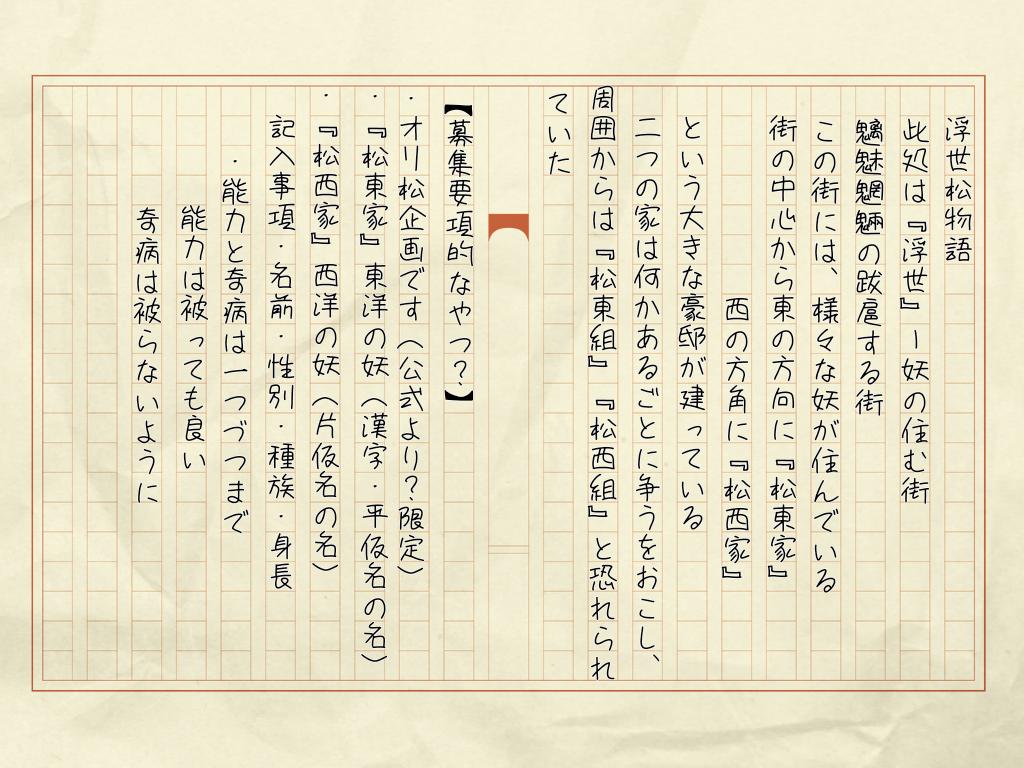 浮世松物語
此処は『浮世』ー妖の住む街
魑魅魍魎の跋扈する街
この街には、様々な妖が住んでいる
街の中心から東の方向に『松東家』
西の方角に『松西家』
という大きな豪邸が建っている
二つの家は何かあるごとに争うをおこし、
周囲からは『松東組』『松西組』と恐れられ
ていた
【募集要項的なやつ？】
・オリ松企画です（公式より？限定）
・『松東家』東洋の妖（漢字・平仮名の名）
・『松西家』西洋の妖（片仮名の名）
記入事項・名前・性別・種族・身長
・能力と奇病は一つづつまで
能力は被っても良い
奇病は被らないように